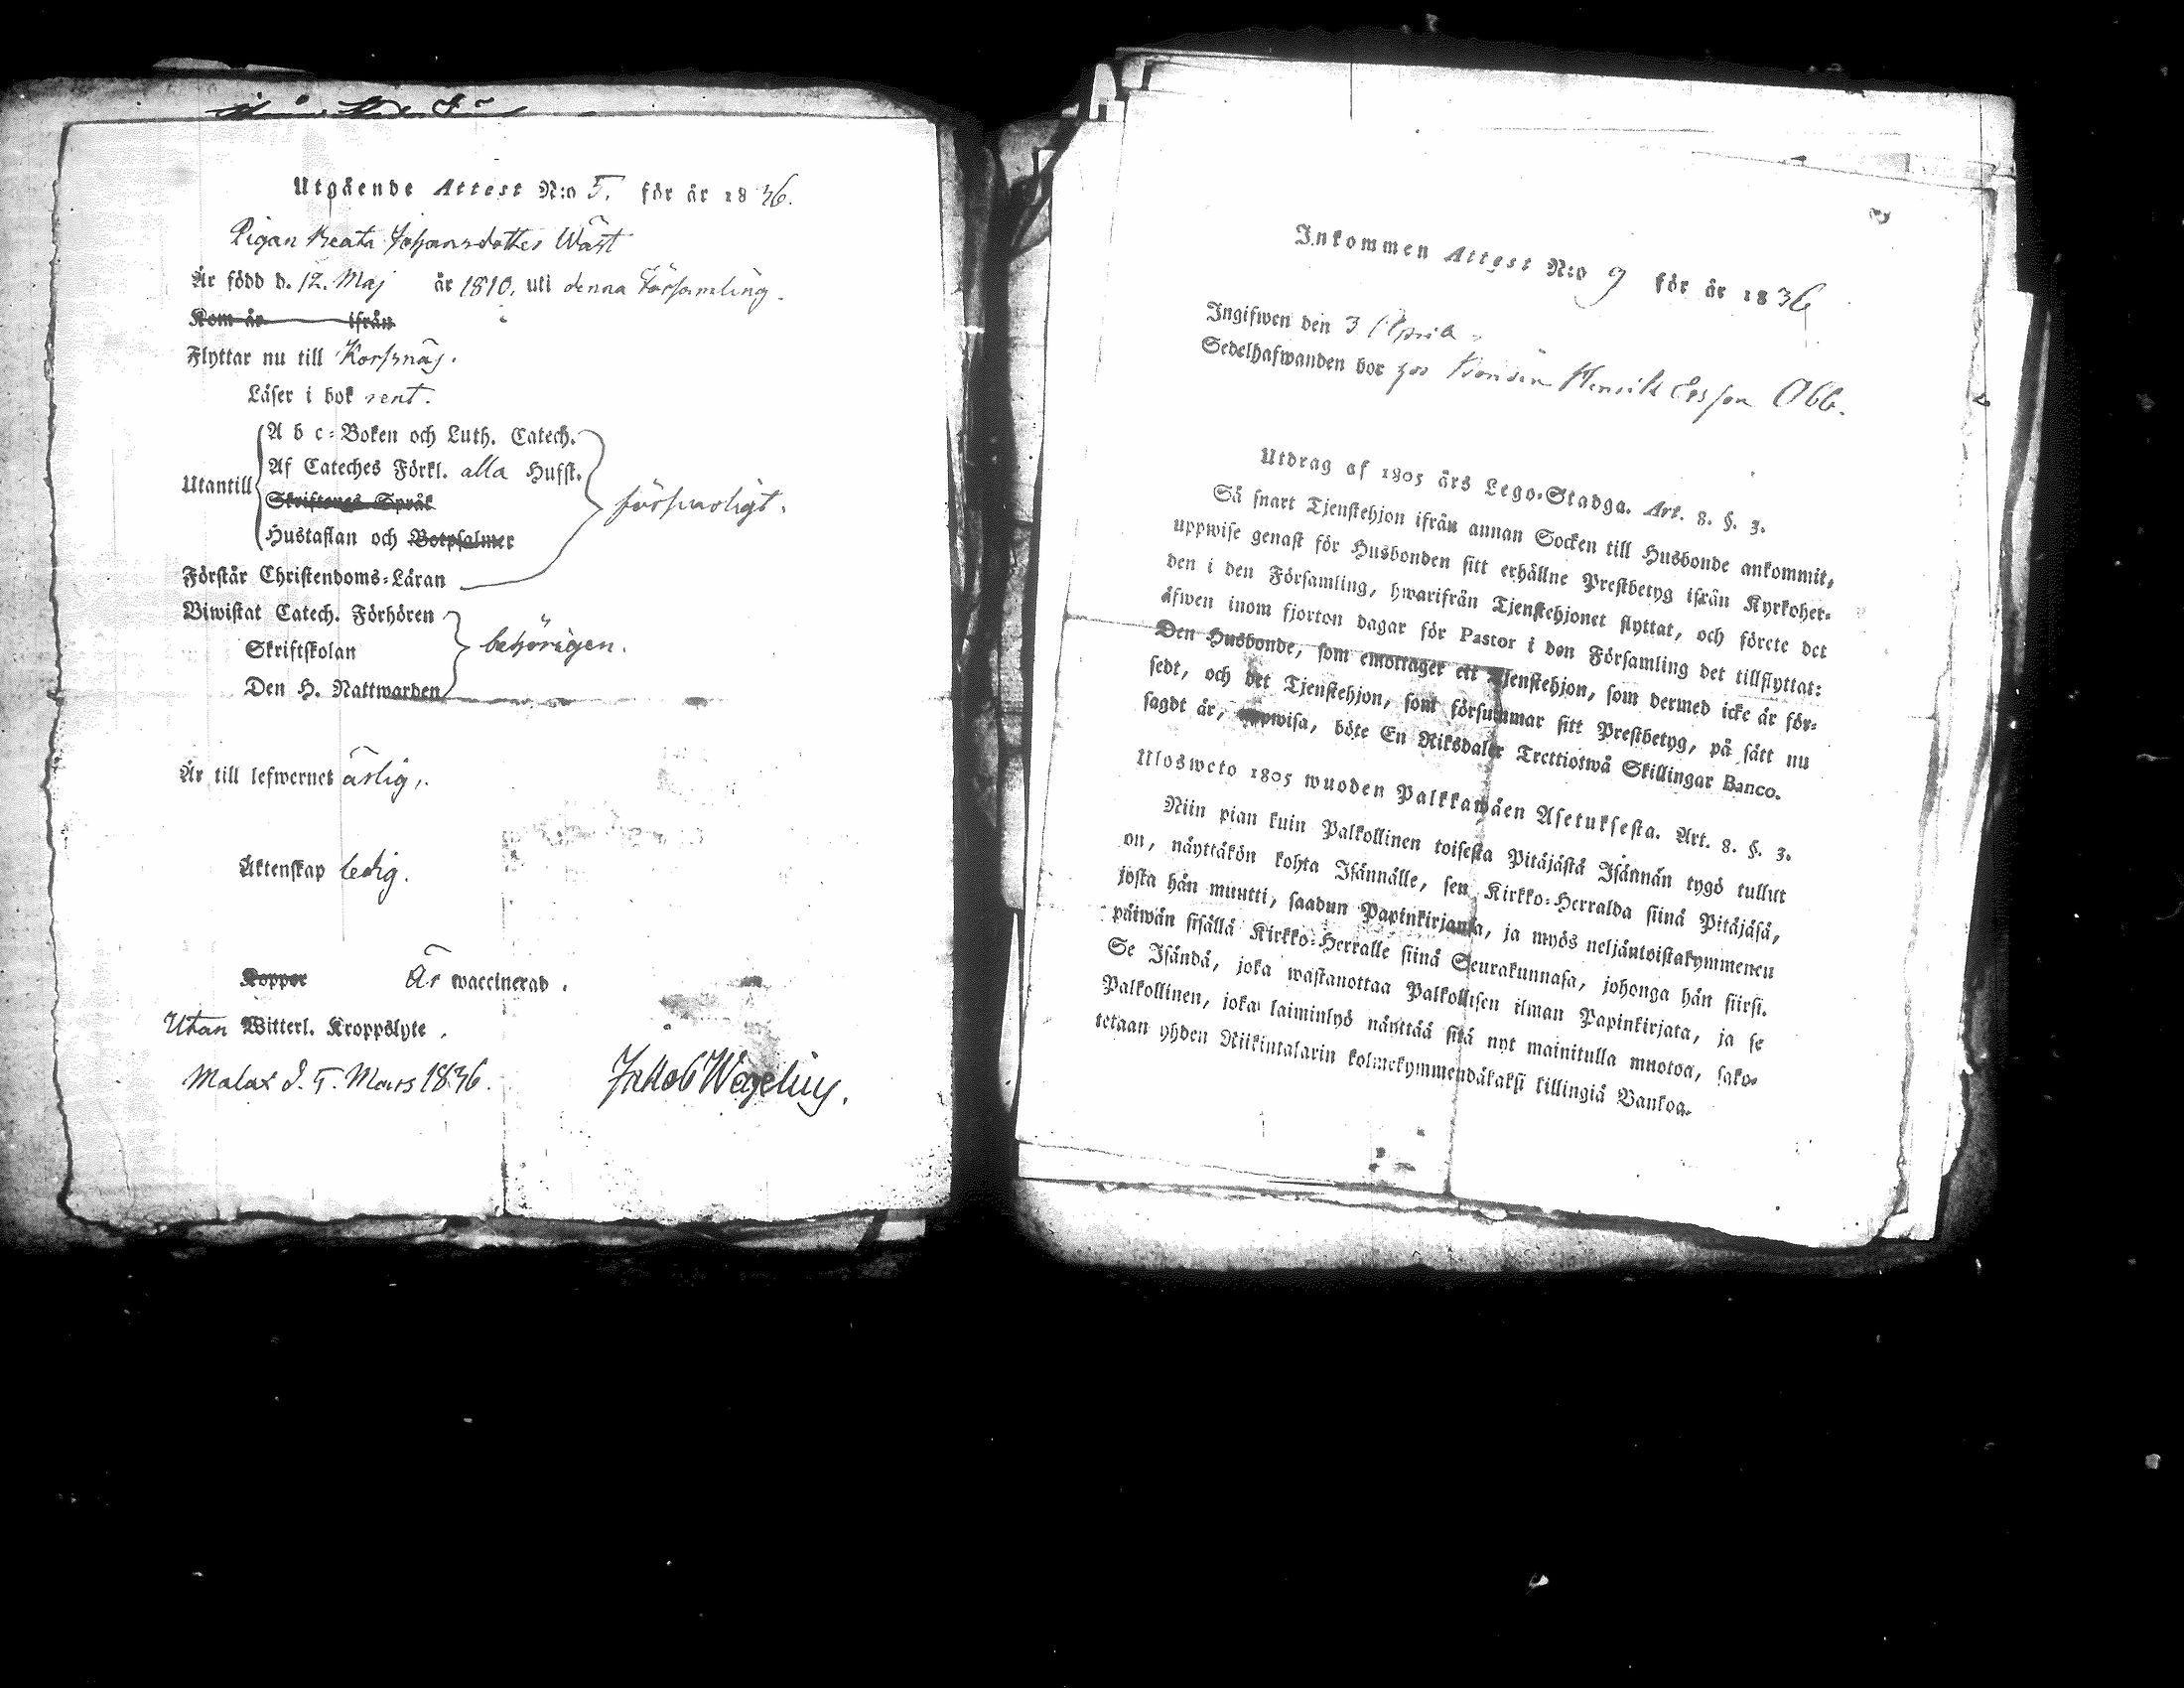 Utgående Attest N:o 5. för år 1836.
Pigan Beata Johansdotter Wäst
Är född d. 12. Maj år 1810, uti denna Församling.
Kom år ifrån
Flyttar nu till Korsnäs.
Läser i bok rent.
A b c-Boken och Luth. Catech.
Af Cateches Förkl. alla Hufst.
Utantill
Skriftenes Språk
försvarligt.
Hustaflan och Botpsalmer
Förstår Christendoms-Läran
Biwistat Catech. Förhören
Skriftskolan
behörigen.
Den H. Nattwarden
Är till lefwernet ärlig,
Äktenskap ledig.
Koppor Är waccinerad.
Utan Witterl. Kroppslyte.
Malax d. 5. Mars 1836. Jakob Wegelius.
Inkommen Attest N:o 9 för år 1836
Ingifwen den 3 April
Sedelhafwanden bor hos Bonden Henrik Ersson Åbb.
Utdrag af 1805 års Lego-Stadga. Art. 8. §. 3.
Så snart Tjenstehjon ifrån annan Socken till Husbonde ankommit,
uppwise genast för Husbonden sitt erhållne Prestbetyg ifrån Kyrkoher-
den i den Församling, hwarifrån Tjenstehjonet flyttat, och förete det
äfwen inom fjorton dagar för Pastor i den Församling det tillflyttat:
Den Husbonde, som emottager ett Tjenstehjon, som dermed icke är för-
sedt, och det Tjenstehjon, som försummar sitt Prestbetyg, på sätt nu
sagdt är, uppwisa, böte En Riksdaler Trettiotwå Skillingar Banco.
Ulosweto 1805 wuoden Palkkawäen Asetuksesta. Art. 8. §. 3.
Niin pian kuin Palkollinen toisesta Pitäjästä Isännän tygö tullut
on, näyttäkön kohta Isännälle, sen Kirkko-Herralda siinä Pitäjäsä,
josta hän muutti, saadun Papinkirjansa, ja myös neljäntoistakymmenen
päiwän sisällä Kirkko-Herralle siinä Seurakunnasa, johonga hän siirsi.
Se Isändä, joka wastanottaa Palkollisen ilman Papinkirjata, ja se
Palkollinen, joka laiminlyö näyttää sitä nyt mainitulla muotoa, sako-
tetaan yhden Riikintalarin kolmekymmendäkaksi killingiä Bankoa.